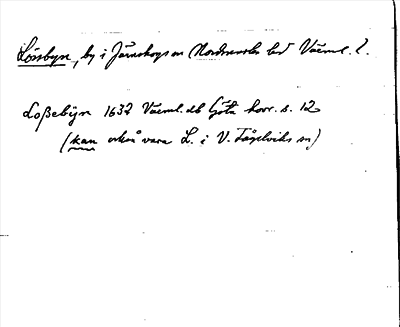 Lössbyn, by i Järnskogs sn Nordmarks hd Värml. l.
Loßebÿn 1637 Värml. db Göta hovr. s. 12
(kan också vara L. i V. Fågelviks sn)